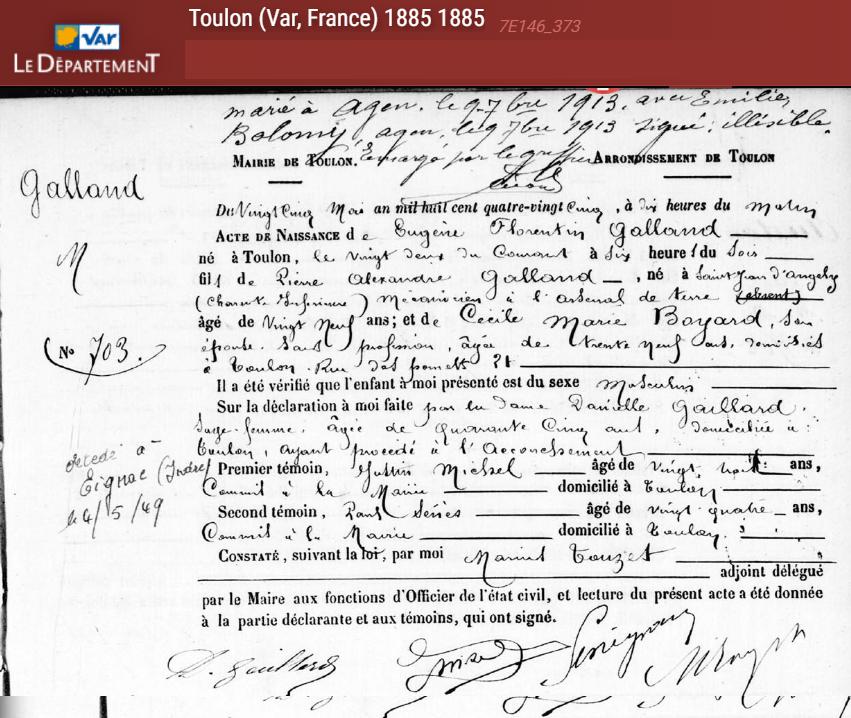 Toulon (Var, France) 1885 1885 7E146_373
VAR
LE DÉPARTEMENT
marié à Agen, le 9 7bre 1913, avec Emilie
Bolomy, agen, le 9 7bre 1913 signé: illisible.
MAIRIE DE TOULON. Emargé par le greffier ARRONDISSEMENT DE TOULON
Galland
M
Du Vingt Cinq Mai an mil huit cent quatre-vingt Cinq, à dix heures du matin
ACTE DE NAISSANCE de Eugène Florentin Galland
né à Toulon, le vingt deux du Courant à Six heures du Soir
fils de Pierre Alexandre Galland, né à Saint Jean d'angely
(Charente Inférieure) Mécanicien à l'arsenal de terre (absent)
âgé de Vingt Neuf ans; et de Cécile Marie Bayard, son
N° 703.
épouse. Sans profession, agée de trente neuf ans, domiciliés
à Toulon. Rue des 21
Il a été vérifié que l'enfant à moi présenté est du sexe Masculin
Sur la déclaration à moi faite par la dame Danielle Gaillard.
Sage-femme. âgée de quarante Cinq ans, domiciliée à
Toulon, ayant procédé à l'Accouchement
décédé à
Eignac (Indre)
le 4/5/49
Premier témoin, Justin Michel âgé de vingt huit ans,
Commis à la Mairie domicilié à Toulon
Second témoin, Paul âgé de vingt quatre ans,
Commis à la Mairie domicilié à Toulon
CONSTATÉ, suivant la loi, par moi Touzet
adjoint délégué
par le Maire aux fonctions d'Officier de l'état civil, et lecture du présent acte a été donnée
à la partie déclarante et aux témoins, qui ont signé.
D. Gaillard